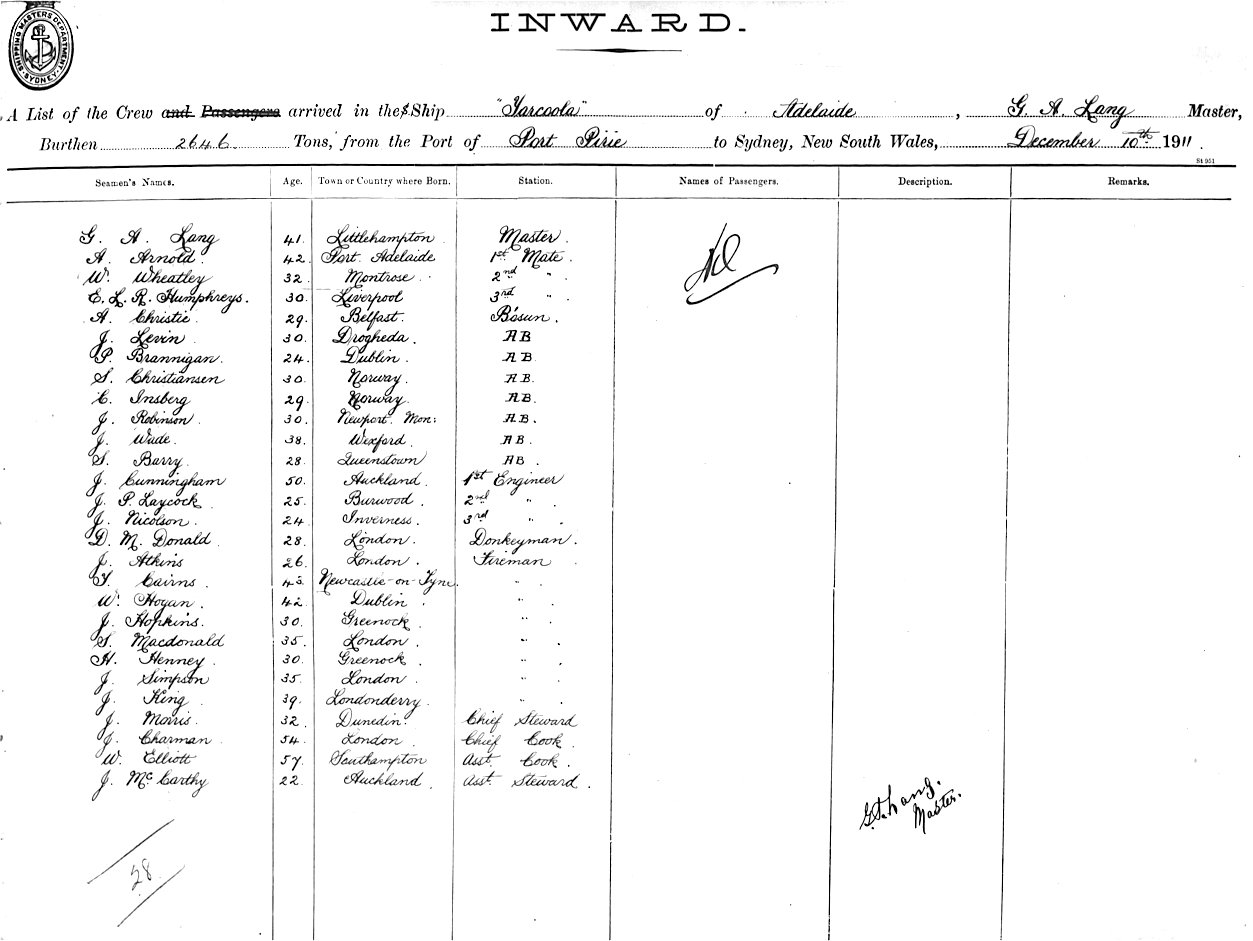 SHIPPING MASTERS DEPARTMENT SYDNEY
INWARD.
A List of the Crew and Passengers arrived in the S Ship "Yarcoola" of Adelaide, G. A. Lang Master,
Burthen 2646 Tons, from the Port of Port Pirie to Sydney, New South Wales, December 10th 1911.
St 951
Seamen's Names. Age. Town or Country where Born. Station. Names of Passengers. Description. Remarks.
G. A. Lang 41. Littlehampton Master.
A. Arnold. 42. Port Adelaide 1st Mate.
W. Wheatley 32. Montrose. 2nd "
E. L. R. Humphreys. 30. Liverpool 3rd "
A. Christie. 29. Belfast. Bosun.
J. Levin 30. Drogheda. AB
P. Brannigan. 24. Dublin. AB.
S. Christiansen 30. Norway. AB.
C. Insberg 29. Norway. AB.
J. Robinson 30. Newport. Mon: AB.
J. Wade. 38. Wexford. AB.
S. Barry. 28. Queenstown AB.
J. Cunningham 50. Auckland. 1st Engineer
J. P. Laycock. 25. Burwood. 2nd "
J. Nicolson. 24. Inverness. 3rd "
D. M. Donald. 28. London. Donkeyman.
J. Atkins 26. London. Fireman
T. Cairns. Newcastle-on-Tyne. "
W. Hogan. 42. Dublin. "
J. Hopkins. 30. Greenock. "
S. Macdonald 35. London. "
H. Henney. 30. Greenock. "
J. Simpson 35. London. "
J. King 39. Londonderry. "
J. Morris. 32. Dunedin. Chief Steward
J. Charman 54. London. Chief Cook.
W. Elliott 57. Southampton Asst. Cook.
J. McCarthy 22. Auckland. Asst. Steward.
G. A. Lang.
Master.
28